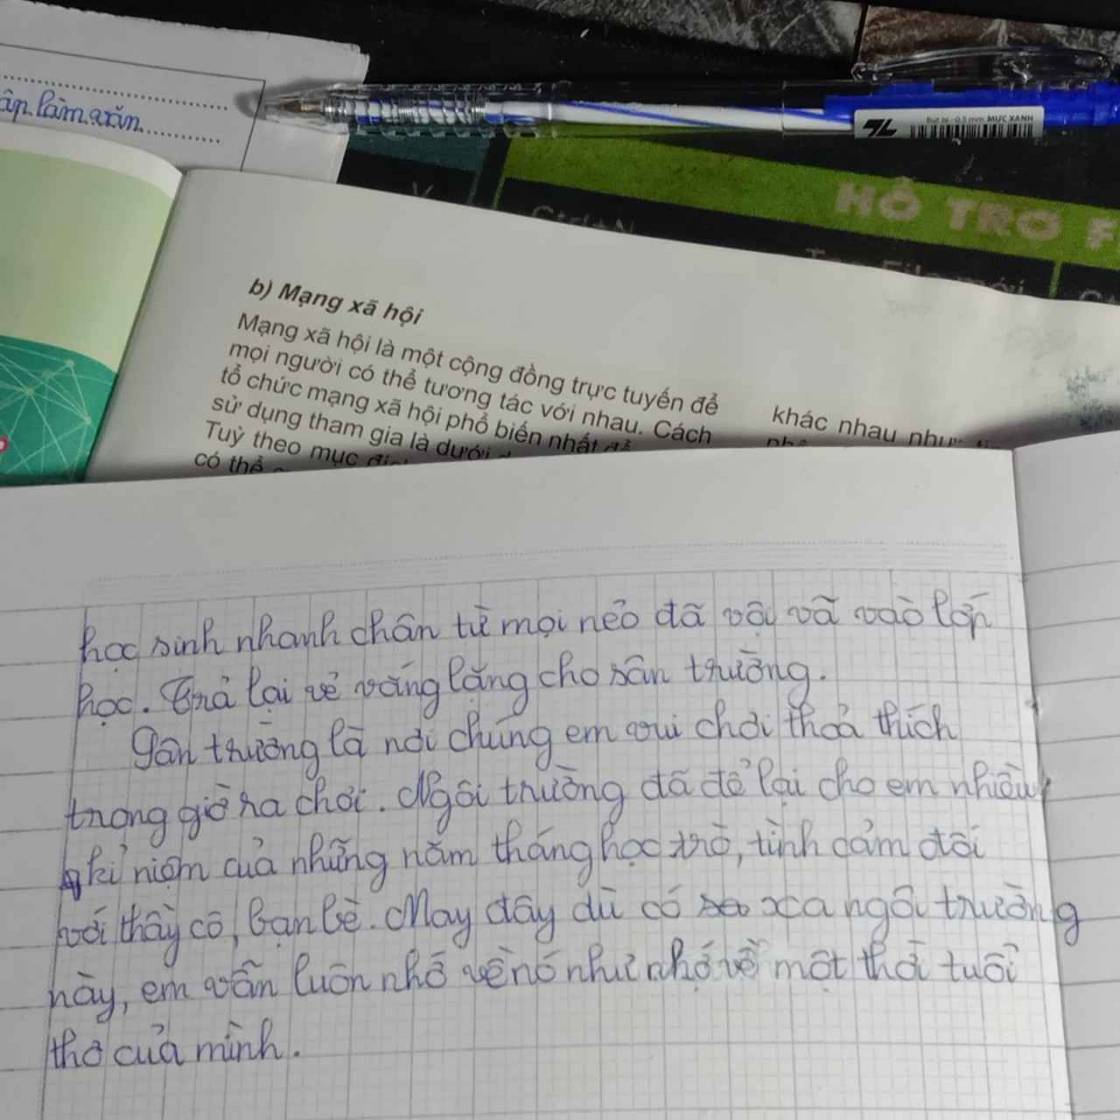 ân làm văn
Bút bi - 0.5 mm MỰC XANH
HỖ TRỢ F
Ctrl+N
b) Mạng xã hội
Mạng xã hội là một cộng đồng trực tuyến để
mọi người có thể tương tác với nhau. Cách
tổ chức mạng xã hội phổ biến nhất
sử dụng tham gia là dưới
Tuỳ theo mục
có thể
khác nhau như
học sinh nhanh chân từ mọi nẻo đã vội vã vào lớp
học. Trả lại vẻ vắng lặng cho sân trường.
Sân trường là nơi chúng em vui chơi thoả thích
trong giờ ra chơi. Ngôi trường đã để lại cho em nhiều
kỉ niệm của những năm tháng học trò, tình cảm đối
với thầy cô, bạn bè. May đây dù có xa ngôi trường
này, em vẫn luôn nhớ về nó như nhớ về một thời tuổi
thơ của mình.